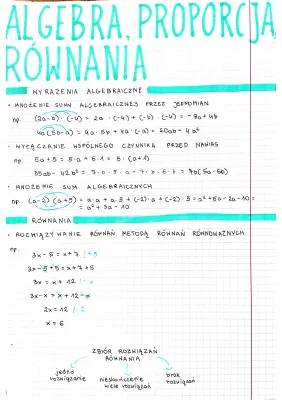 ALGEBRA, PROPORCJA,
RÓWNANIA
WYRAŻENIA ALGEBRAICZNE
• MNOŻENIE SUMY ALGEBRAICZNEJ PRZEZ JEDNOMIAN
np. (2a-b)·(-4) = 2a·(-4)+(-b)·(-4) = -8a+4b
4a(5b-a) = 4a·5b + 4a·(-a) = 20ab-4a²
• WYŁĄCZANIE WSPÓLNEGO CZYNNIKA PRZED NAWIAS
np. 5a+5 = 5·a+5·1 = 5·(a+1)
35ab-42b² = 7·b·5·a-7·b·6·b = 7b(5a-6b)
• MNOŻENIE SUM ALGEBRAICZNYCH
np. (a-2)(a+5) = a·a+a·5+(-2)·a+(-2)·5 = a²+5a-2a-10 =
= a²+3a-10
RÓWNANIA
• ROZWIĄZYWANIE RÓWNAŃ METODĄ RÓWNAŃ RÓWNOWAŻNYCH
np.
3x-5=x+7 /+5
3x-5+5=x+7+5
3x=x+12 /-x
3x-x=x+12-x
2x=12 /:2
x=6
ZBIÓR ROZWIĄZAŃ
RÓWNANIA
jedno nieskończenie brak
rozwiązanie wiele rozwiązań rozwiązań